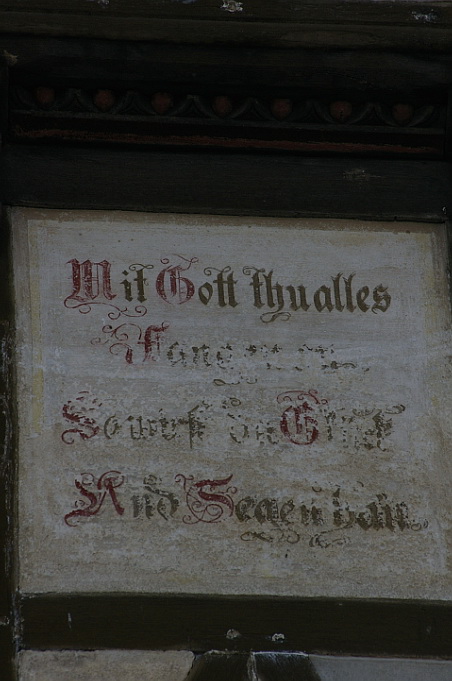 Mit Gott thu alles
Fangen an
So wirst du Glück
Und Segen han